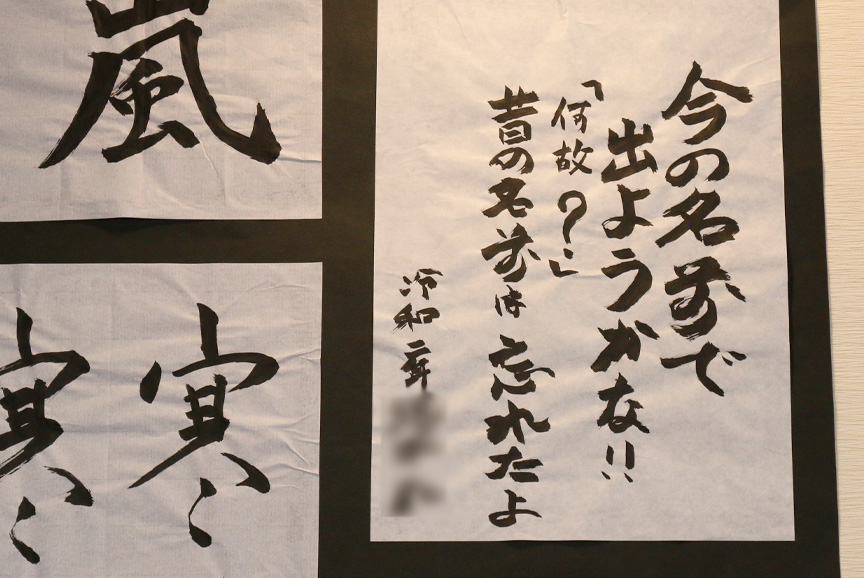 今の名前で
出ようかな!!
「何故?」
昔の名前は忘れたよ
令和二年
嵐
寒
寒